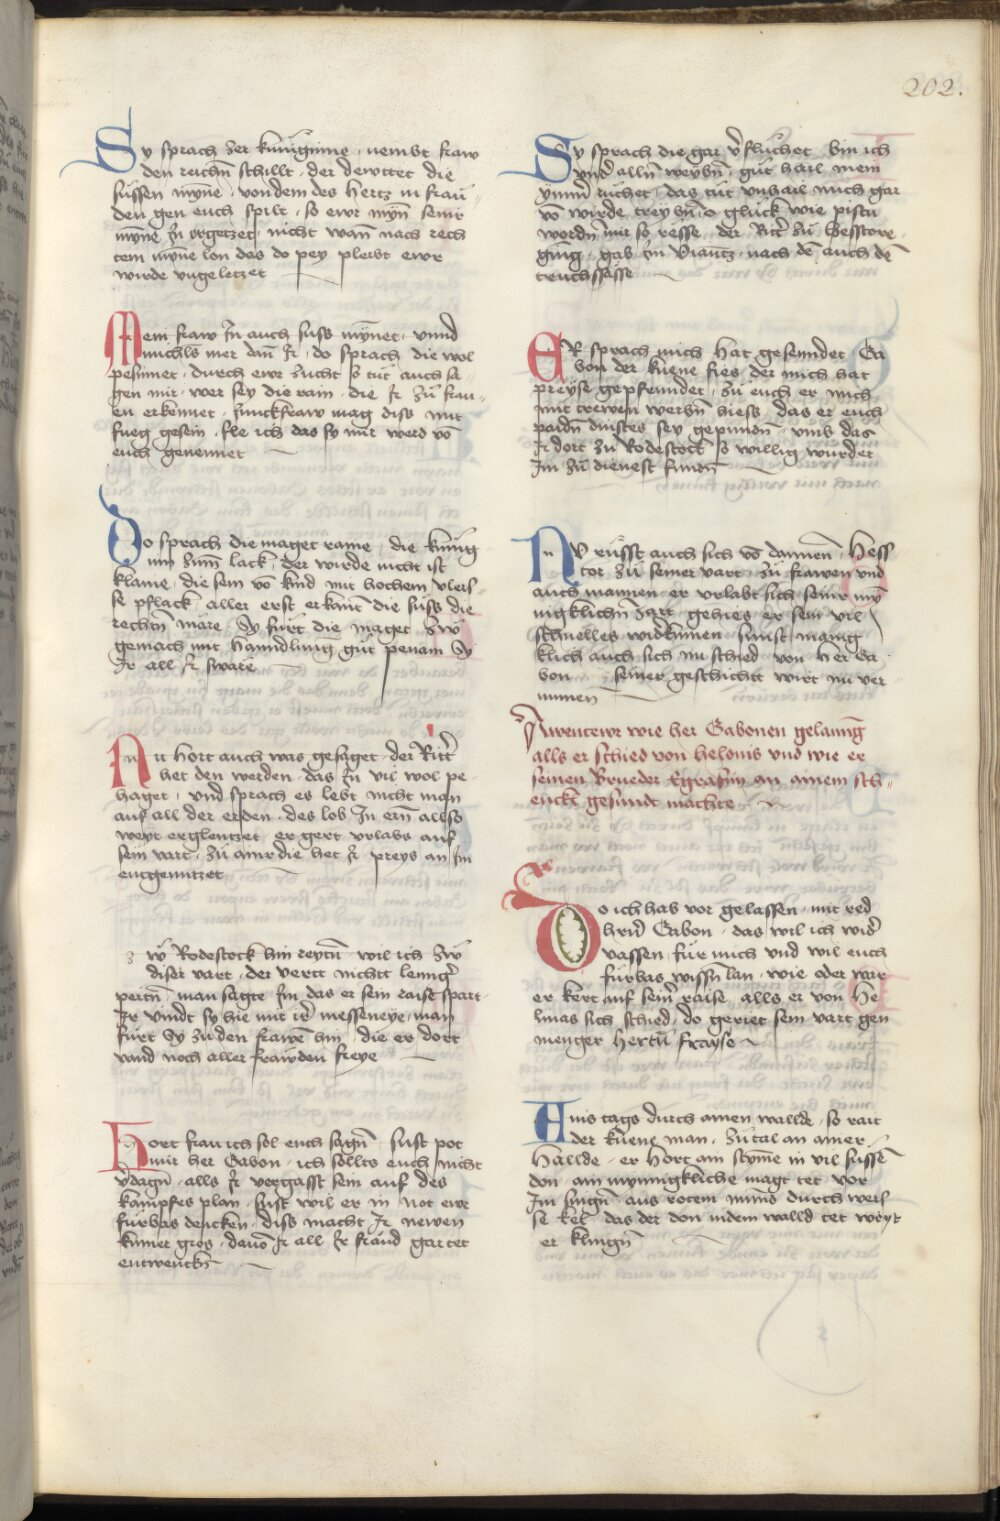 202.
Sy sprach zer kuniginne · nembt fraw
den reichn̄ schillt · der dewttet die
süssen myne · von dem des hertz in frau¨
den gen euch spilt · so ewr myn̄ seinr
myne zu ergetzet · nicht wann nach rech
tem mynne lon des do pey pleibt ewr
wirde vngeletzet
Mein fraw in auch suss mynnet · vnnd
michls mer dan̄ Ir · do sprach die wol
pesinnet · durch ewr zucht so tüt auch sa¨
gen mir · wer sey die rain · die Ir zü frau¨
en erkennet · Junckfraw mag diss mit
fueg gesein · fle ich das sy mir werd vō
euch genennet
Do sprach die maget raine · die kunig
inn zum̄ lack · der wirde nicht ist
klaine · die sein vō kind mit hochem vleis¨
se pflack · aller erst erkant die süss die
rechtn̄ märe · Sy fürt die maget zw
gemach mit hanndlung güt penam Sy
Ir all Ir swäre
Nu hort auch was gesaget · der Ritt̄
het den werden · das In vil wol pe
haget · vnd sprach es lebt nicht man
auf all der erden · des lob In ern̄ allso
weyt erglentzet · er gert vrlabs auf
sein vart · zü ainr die het Ir preys an Im
entgenntzet
zw Rodestock hin reytn̄ · wil ich zw
diser vart · der vertt nichtt lennḡ
peitn̄ · man sagte Im das er sein raise spart
Ir vindt sy hie mit ir̄ messeneye · man
fürt Sy zu den frawē hin · die er dort
vand noch aller frawden freye
Hort frau ich sol euch sagn̄ · sust pot
mir her Gabon · ich sollts euch nicht
v̄dagn̄ · alls Ir vergasst sein auf des
kampfes plan · sust wil er in not ewr
fürbas dencken · diss macht Ir newen
kumer gros · davō Ir all Ir fräud gar tet
entwenckn̄
Sy sprach die gar v̄flüchet bin ich
vnd̄ alln̄ weybn̄ · güt hail mein
ynnd̄t rüchet · das tüt vnhail mich gar
vō wirde treybn̄ · o glück wie pistu
wordn̄ mir so rësse · der Ritt̄ zü hesstore
ging · gab Im Viantz · nach dē auch dē
truchssässe
ER sprach mich hat gesenndet Ga
bon der küene fies · der mich hat
preyse gepfenndet · zü euch er mich
mit trewen werbn̄ hiess · das er euch
paidn̄ dinstes sey gepundn̄ · vmb das
Ir dort zu Rodestock so willig wurdet
Im zü dienest funden
Nu rüsst auch sich vō dannen · Hess
tor zü seiner vart · zü frawen vnd
auch mannen · er vrlabt sich seinr my̆
nigklichn̄ zart · gehies er sein vil
schnelles widkumen sunst mänig
klich auch sich nu schied von her Ga
bon · seiner geschichtt wirt nu ver
numen
Awentewr wie her Gabonen gelanng
alls er schied von helonis vnd wie er
seinen Brueder Egrasim an ainem sth¨
euckt gesundt machte
Do ich hab vor gelassen · mit red
hern̄ Gabon · das wil ich wid̄
vassen für mich vnd wil euch
fürbas wissn̄ lan · wie oder war
er kert auf sein̄ raise alls er von He
linas sich schied · do geriet sein vart gen
menger hertn̄ frayse
Ains tags durch ainen wallde · so rait
der küene man · zü tal an ainer
hallde · er hort ain stym̄e in vil süssē
don · ain mynnigkliche magt tet vor
Im singn̄ · aus rotem mund durch weis
se kel · das der don in dem walld tet weyt
er klingn̄